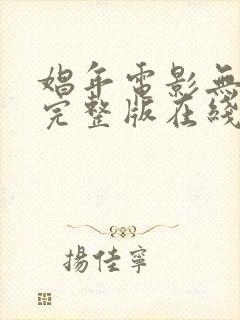 娼年電影無
完整版在綫
揚佳寧